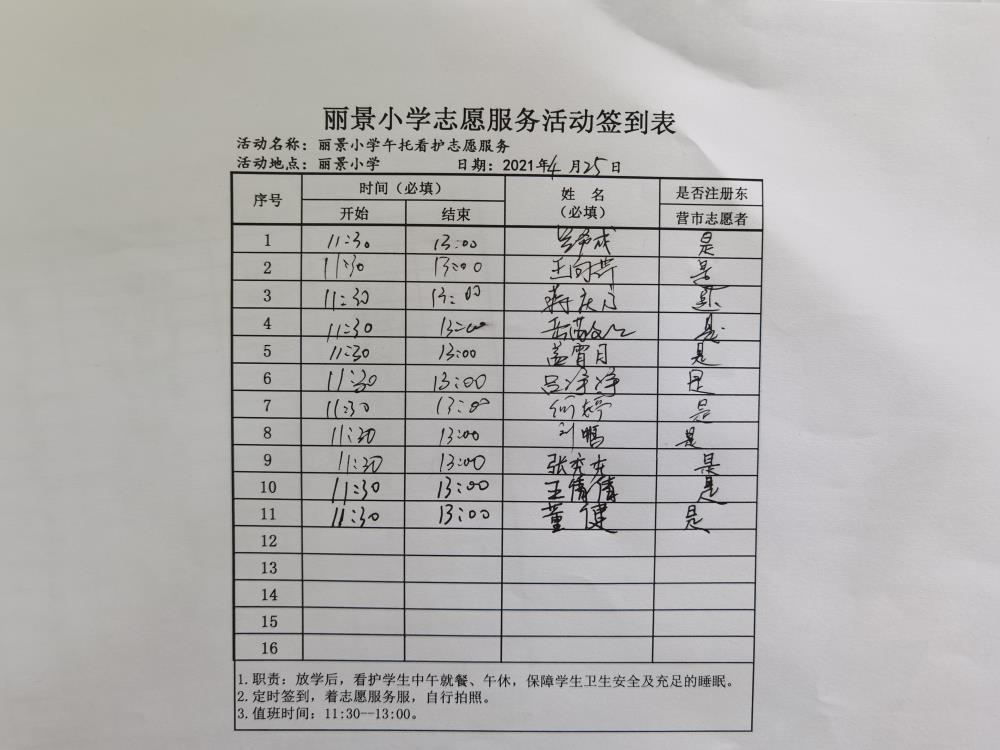 丽景小学志愿服务活动签到表
活动名称：丽景小学午托看护志愿服务
活动地点：丽景小学 日期：2021年4月25日
序号 时间（必填） 姓 名（必填） 是否注册东营市志愿者
开始 结束
1 11:30 13:00 是
2 11:30 13:00 是
3 11:30 13:00 是
4 11:30 13:00 是
5 11:30 13:00 是
6 11:30 13:00 吕净净 是
7 11:30 13:00 何婷 是
8 11:30 13:00 刘鹏 是
9 11:30 13:00 是
10 11:30 13:00 王倩倩 是
11 11:30 13:00 董健 是
12
13
14
15
16
1.职责：放学后，看护学生中午就餐、午休，保障学生卫生安全及充足的睡眠。
2.定时签到，着志愿服务服，自行拍照。
3.值班时间：11:30--13:00。